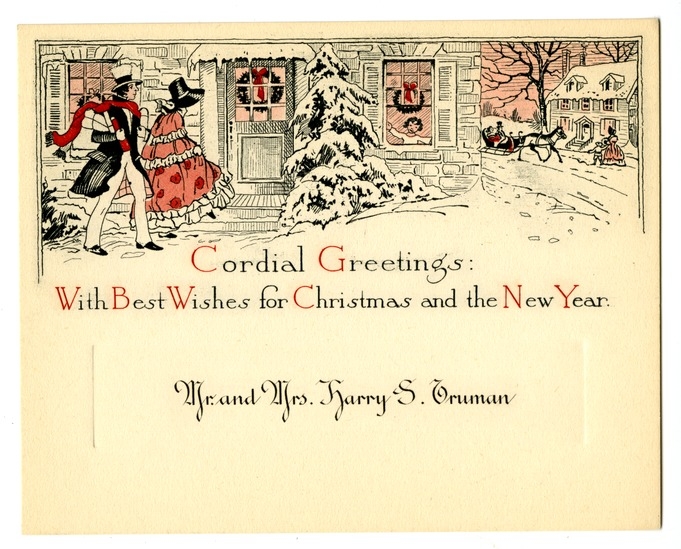 Cordial Greetings:
With Best Wishes for Christmas and the New Year.
Mr. and Mrs. Harry S. Truman